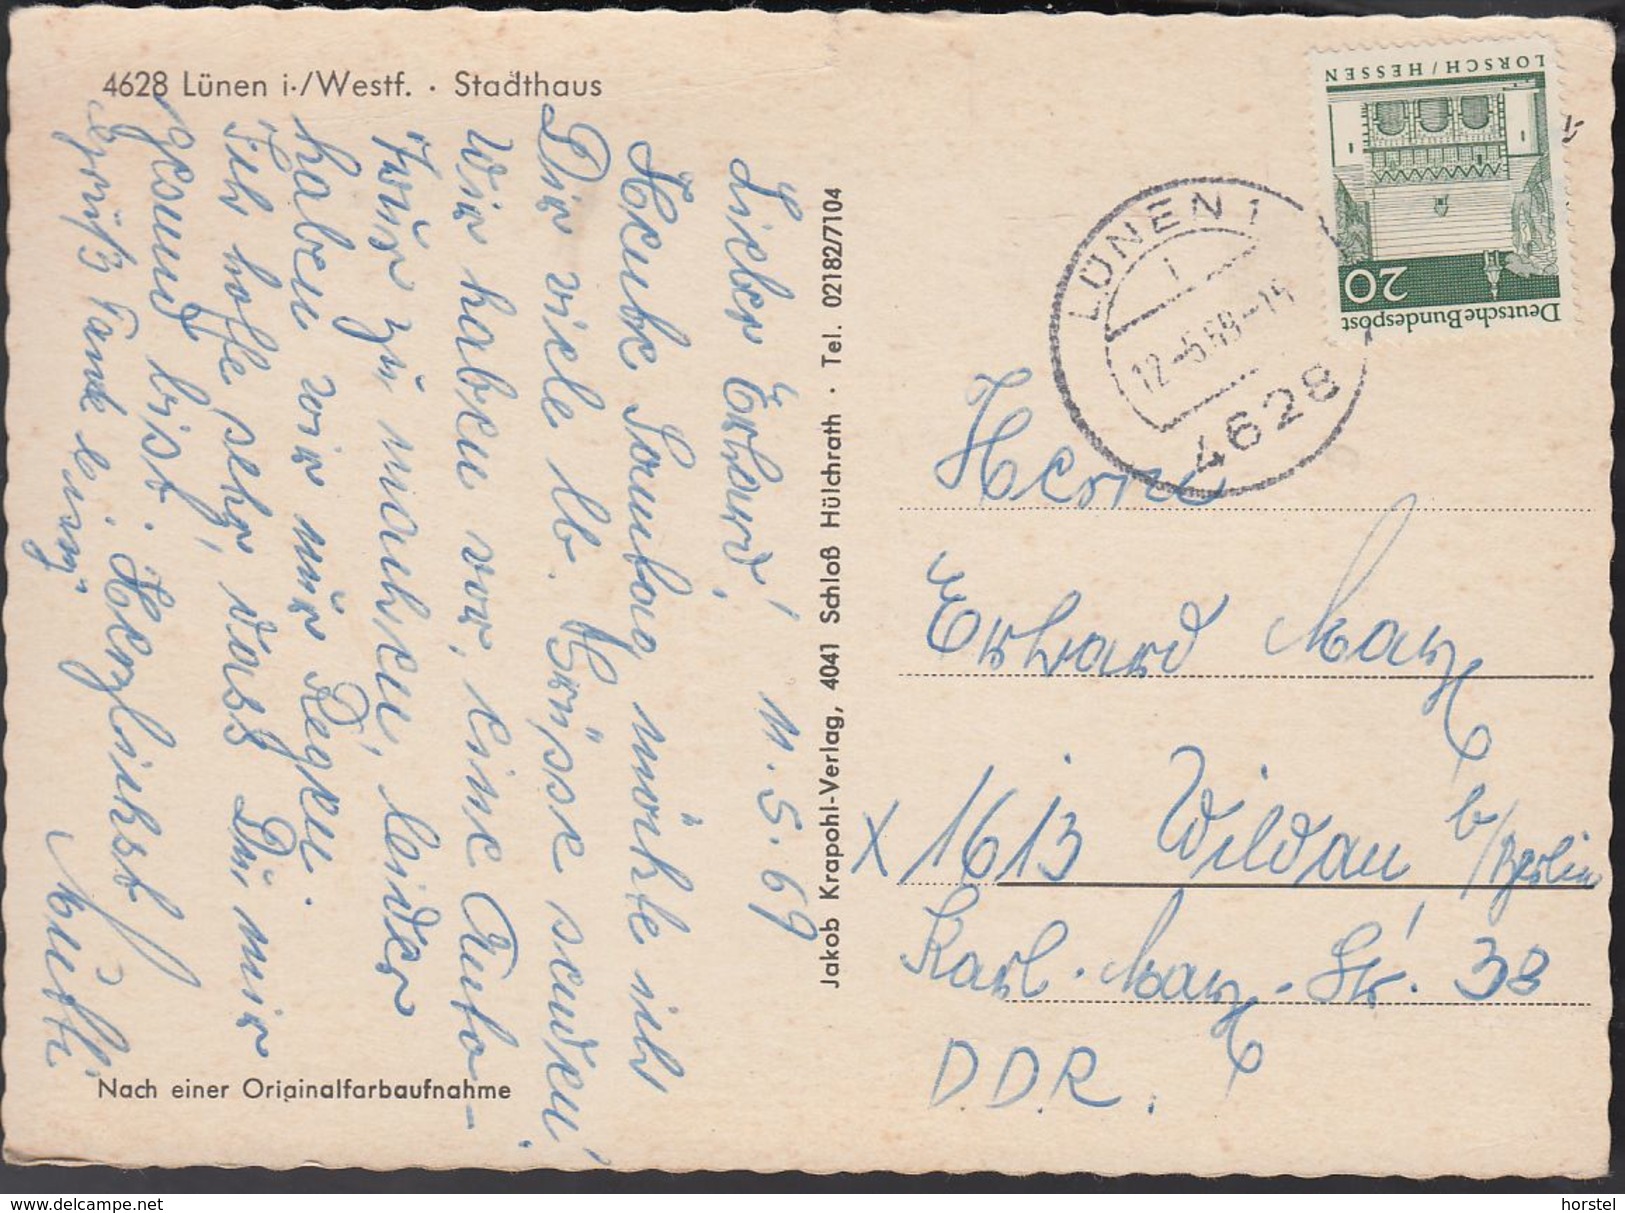 4628 Lünen i./Westf. · Stadthaus
Lieber Erhard! 11.5.69
Heute Sonntag möchte ich
Dir viele lb. Grüsse senden!
Wir haben vor, eine Auto-
tour zu machen, leider
haben wir nur Regen.
Ich hoffe sehr, dass Du mir
gesund bist. Herzlichst
Mutti
Grüß Tante
Nach einer Originalfarbaufnahme
Jakob Krapohl-Verlag, 4041 Schloß Hülchrath · Tel. 02182/7104
Deutsche Bundespost
20
LORSCH/HESSEN
LÜNEN 1
12.-5.69-14
4628
Herrn
Erhard Marx
X 1613 Wildau b/Berlin
Karl-Marx-Str. 38
D.D.R.
horstel
www.delcampe.net